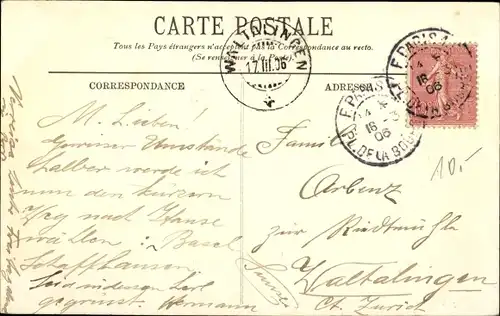 CARTE POSTALE
Tous les Pays étrangers n'acceptent pas la Correspondance au recto.
(Se renseigner à la Poste).
WALTALINGEN
17.III.06
PARIS
16
06
PL. DE LA BOURSE
PARIS
16
06
DE LA BOU
CORRESPONDANCE
ADRESSE
M. Lieben!
Gewisser Umstände
halber werde ich
nun den kürzern
Weg nach Hause
wählen: Basel
Schaffhausen
Seid indessen herzl
gegrüsst. Hermann
Familie
Arbenz
zur Riedtmühle
Waltalingen
Ct. Zürich
Suisse
10.-